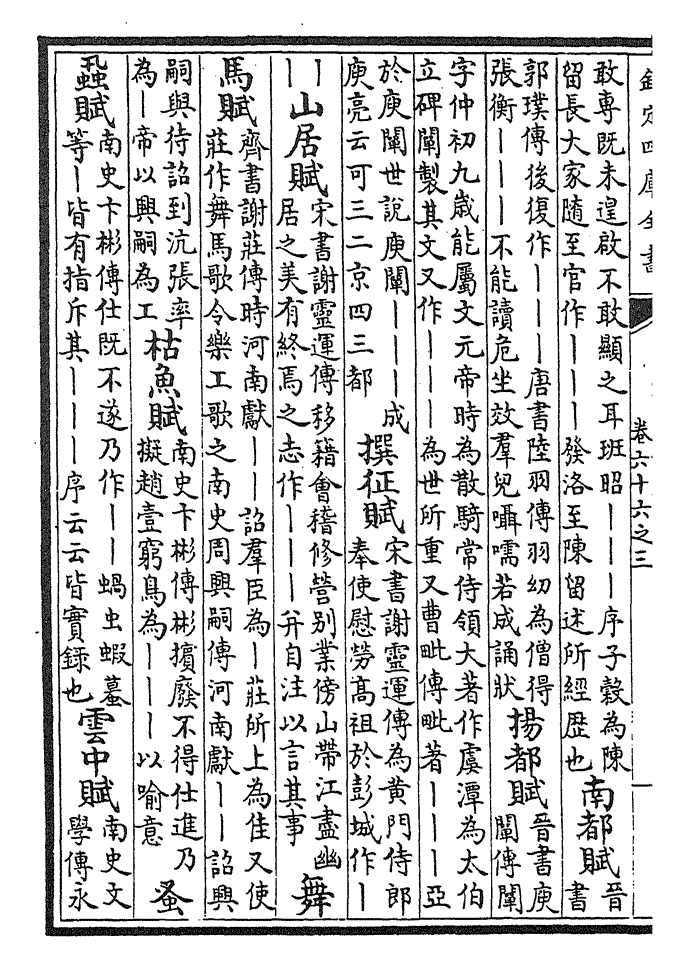 欽定四庫全書
卷六十六之三
敢專既未遑啟不敢顯之耳班昭｜｜｜序子榖為陳
留長大家隨至官作｜｜｜發洛至陳留述所經歴也
南都賦
晉
書
郭璞傳後復作｜｜｜｜唐書陸羽傳羽幼為僧得
張衡｜｜｜不能讀危坐效羣兒囁嚅若成誦狀
揚都賦
晉書庾
闡傳闡
字仲初九歳能屬文元帝時為散騎常侍領大著作虞潭為太伯
立碑闡製其文又作｜｜｜為世所重又曹毗傳毗著｜｜｜亞
於庾闡世說庾闡｜｜｜成
庾亮云可三二京四三都
撰征賦
宋書謝靈運傳為黄門侍郎
奉使慰勞髙祖於彭城作｜
｜
｜
山居賦
宋書謝靈運傳移籍會稽修營别業傍山帶江盡幽
居之美有終焉之志作｜｜｜并自注以言其事
舞
馬賦
齊書謝莊傳時河南獻｜｜詔羣臣為｜莊所上為佳又使
莊作舞馬歌令樂工歌之南史周興嗣傳河南獻｜｜詔興
嗣與待詔到沆張率
為｜帝以興嗣為工
枯魚賦
南史卞彬傳彬擯廢不得仕進乃
擬趙壹窮鳥為｜｜｜以喻意
蚤
蝨賦
南史卞彬傳仕既不遂乃作｜｜蝸虫蝦蟇
等｜皆有指斥其｜｜｜序云云皆實録也
雲中賦
南史文
學傳永